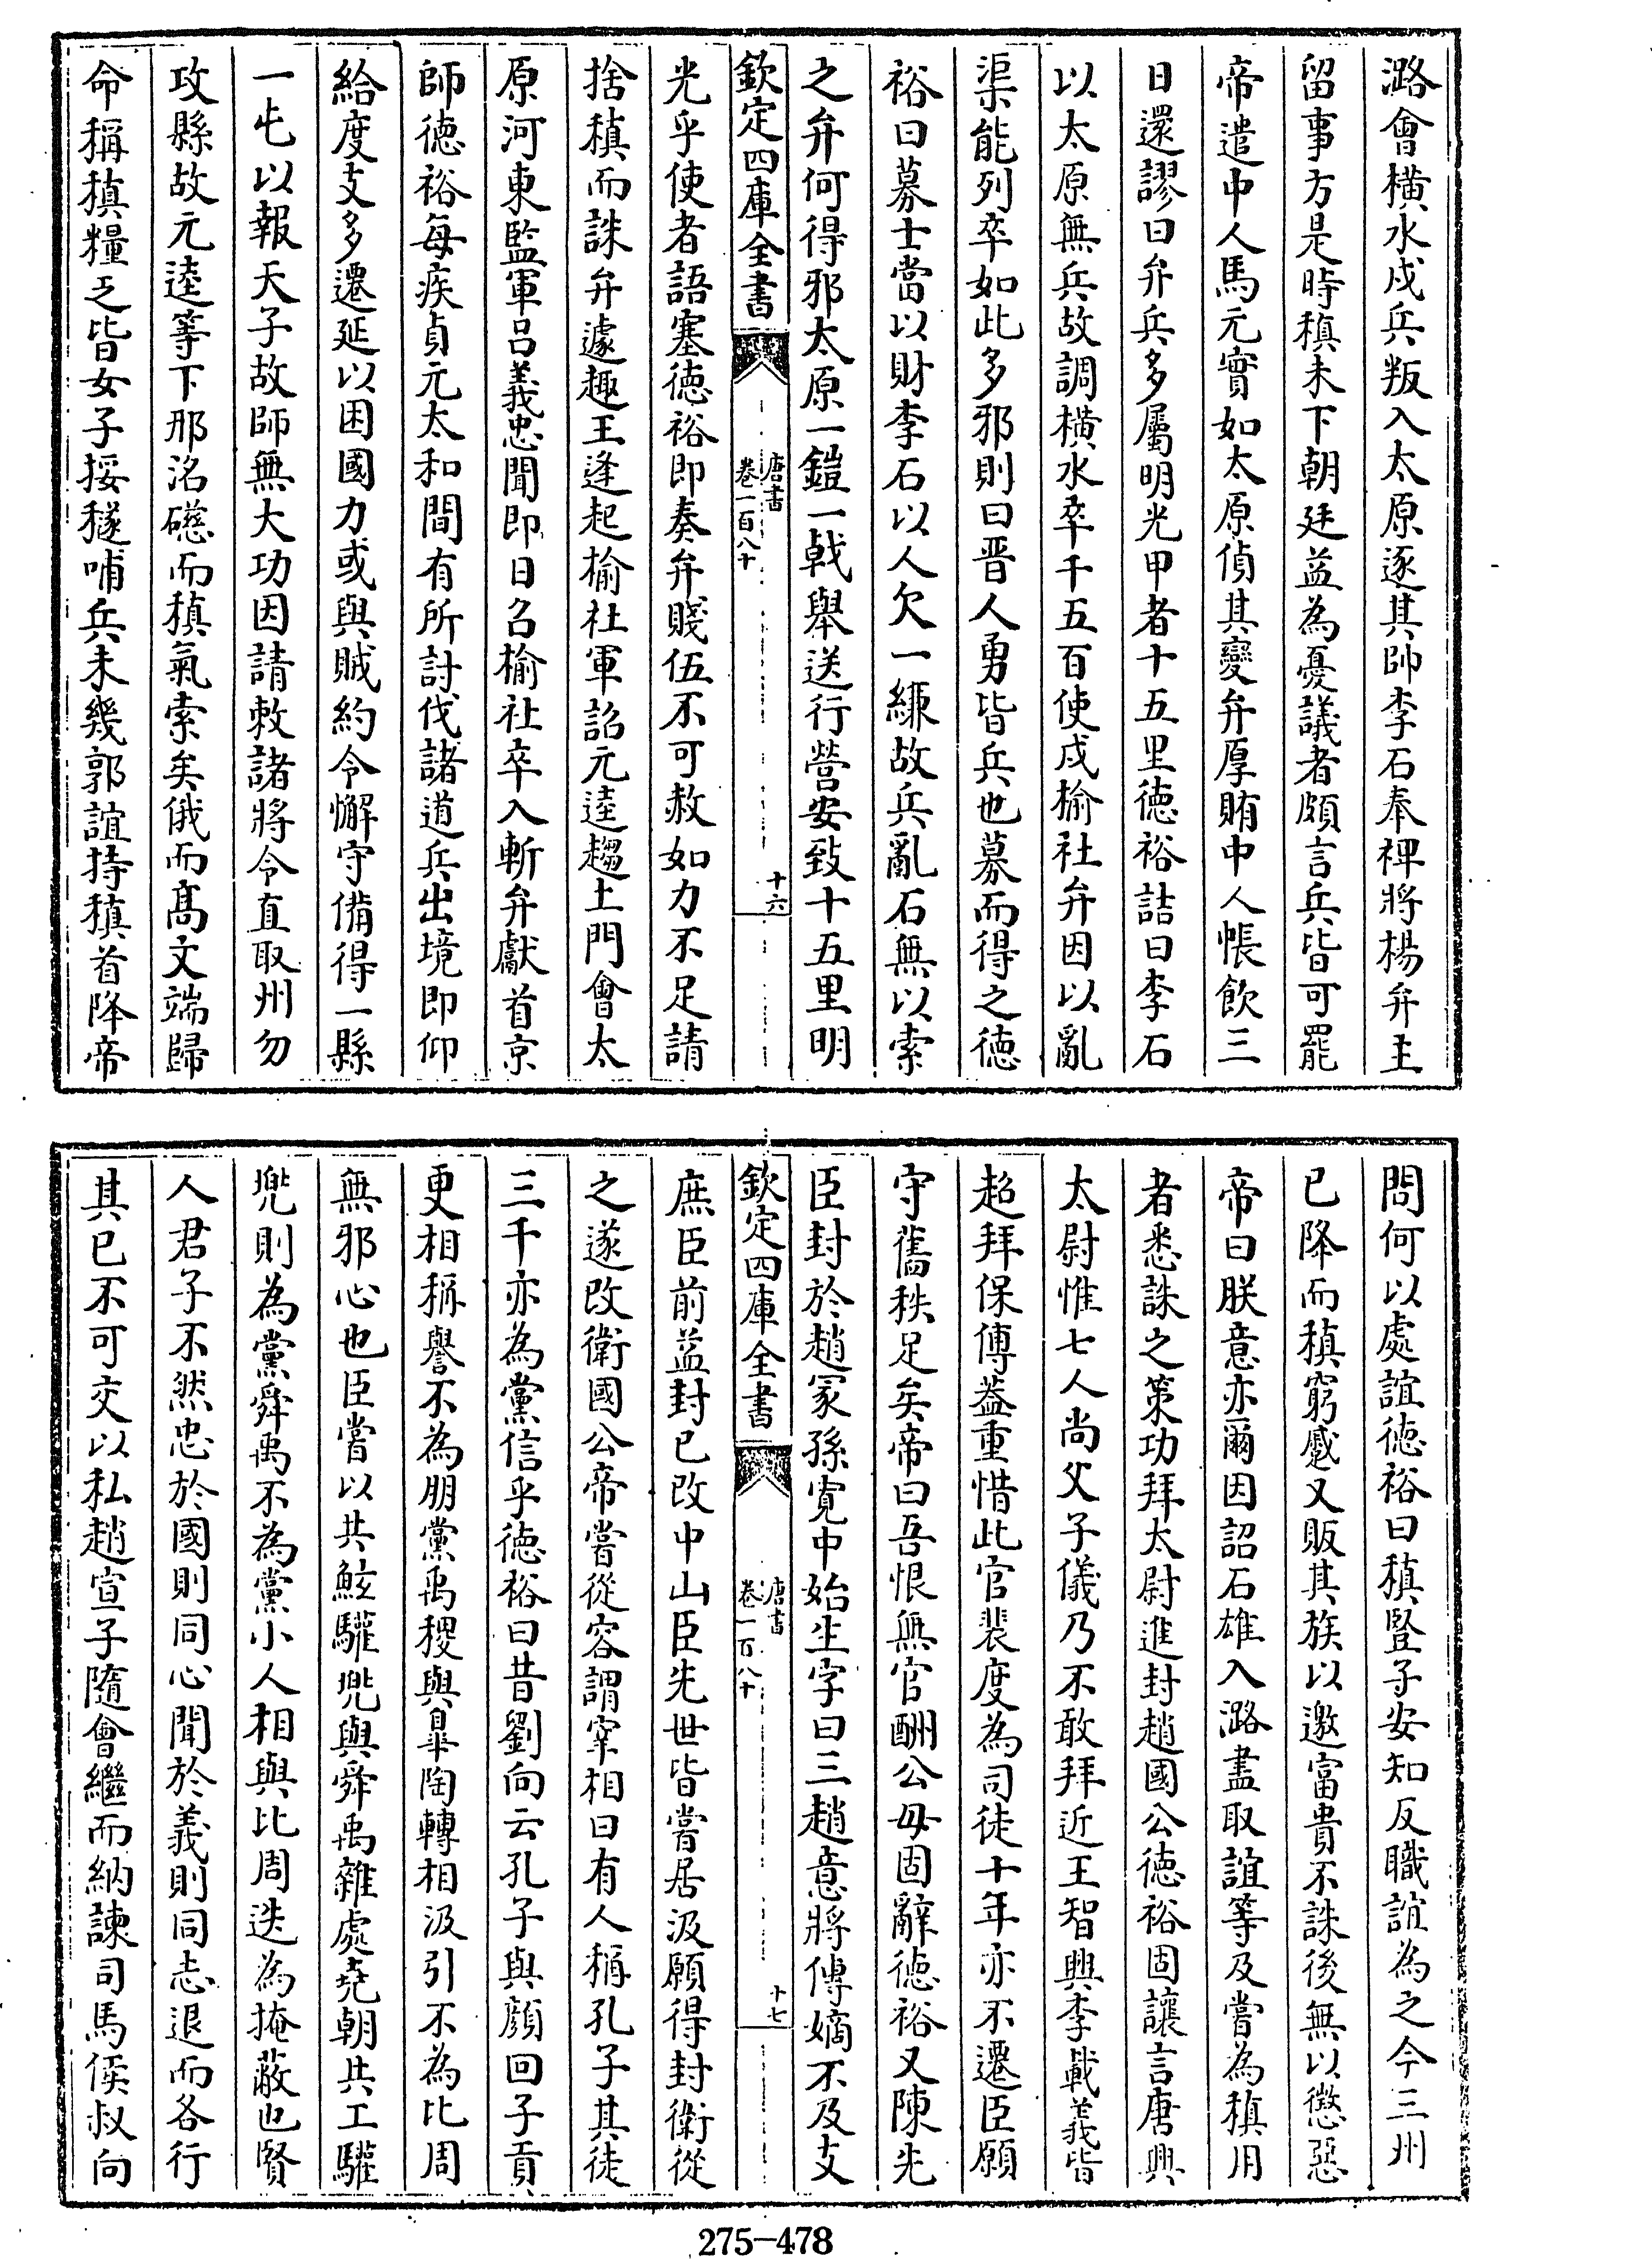 潞會橫水戍兵叛入太原逐其帥李石奉裨將楊弁主
留事方是時稹未下朝廷益為憂議者頗言兵皆可罷
帝遣中人馬元實如太原偵其變弁厚賄中人帳飲三
日還謬曰弁兵多屬明光甲者十五里德裕詰曰李石
以太原無兵故調橫水卒千五百使戍榆社弁因以亂
渠能列卒如此多邪則曰晉人勇皆兵也募而得之德
裕曰募士當以財李石以人欠一縑故兵亂石無以索
之弁何得邪太原一鎧一戟舉送行營安致十五里明
欽定四庫全書
唐書
卷一百八十
十六
光乎使者語塞德裕即奏弁賤伍不可赦如力不足請
捨稹而誅弁遽趣王逢起榆社軍詔元逵趨土門會太
原河東監軍呂義忠聞即日召榆社卒入斬弁獻首京
師德裕每疾貞元太和間有所討伐諸道兵出境即仰
給度支多遷延以困國力或與賊約令懈守備得一縣
一屯以報天子故師無大功因請敕諸將令直取州勿
攻縣故元逵等下邢洺磁而稹氣索矣俄而高文端歸
命稱稹糧乏皆女子挼穟哺兵未幾郭誼持稹首降帝
問何以處誼德裕曰稹豎子安知反職誼為之今三州
已降而稹窮蹙又販其族以邀富貴不誅後無以懲惡
帝曰朕意亦爾因詔石雄入潞盡取誼等及嘗為稹用
者悉誅之策功拜太尉進封趙國公德裕固讓言唐興
太尉惟七人尚父子儀乃不敢拜近王智興李載義皆
超拜保傅蓋重惜此官裴度為司徒十年亦不遷臣願
守舊秩足矣帝曰吾恨無官酬公毋固辭德裕又陳先
臣封於趙冢孫寬中始生字曰三趙意將傳嫡不及支
欽定四庫全書
唐書
卷一百八十
十七
庶臣前益封已改中山臣先世皆嘗居汲願得封衛從
之遂改衛國公帝嘗從容謂宰相曰有人稱孔子其徒
三千亦為黨信乎德裕曰昔劉向云孔子與顏回子貢
更相稱譽不為朋黨禹稷與皋陶轉相汲引不為比周
無邪心也臣嘗以共鯀驩兜與舜禹雜處堯朝共工驩
兜則為黨舜禹不為黨小人相與比周迭為掩蔽也賢
人君子不然忠於國則同心聞於義則同志退而各行
其已不可交以私趙宣子隨會繼而納諫司馬侯叔向
275-478